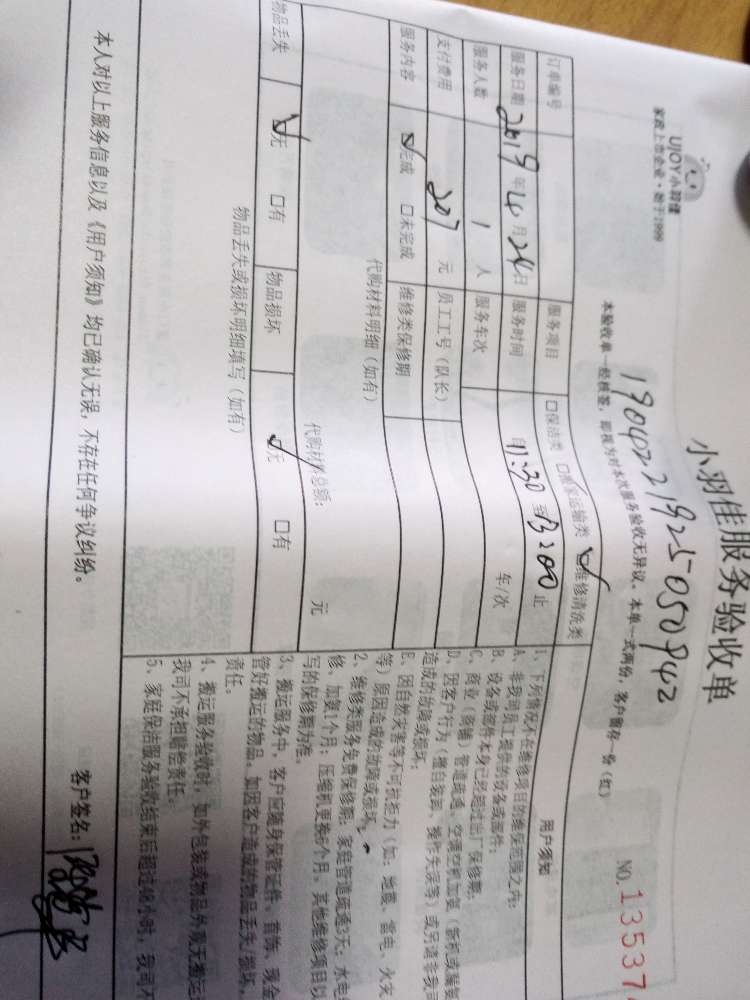 UJOY小羽佳
家政上市企业·始于1999
小羽佳服务验收单
NO.13537
1904221925050942
本验收单一经核签，即视为对本次服务验收无异议。本单一式两份，客户留存一份（红）
订单编号 服务项目 □保洁类 □搬家运输类 ☑维修清洗类
服务日期 2019年4月24日 服务时间 自11:30至13:00止
服务人数 1人 服务车次 车/次
支付费用 207元 员工工号（队长）
服务内容 ☑完成 □未完成 维修类保修期
代购材料明细（如有）
代购材料总额： 元
物品丢失 ☑无 □有 物品损坏 ☑无 □有
物品丢失或损坏明细填写（如有）
用户须知
1、下列情况不在维修项目的维保范围之内：
A、非我司员工提供的设备或部件；
B、设备或部件本身已经超过出厂保修期；
C、商业（商铺）管道疏通、空调空机加氨（新机或漏氨
D、因客户行为（擅自装卸、操作失误等）或另请非我司
造成的故障或损坏；
E、因自然灾害等不可抗拒力（如：地震、雷电、火灾
等）原因造成的故障或损坏。
2、维修类服务免费保修期：家庭管道疏通3天；水电
修、加氨1个月；压缩机更换6个月。其他维修项目以
写的保修期为准。
3、搬运服务中，客户应随身保管证件、首饰、现金
管好搬运的物品，如因客户造成的物品丢失、损坏，
责任。
4、搬运服务验收时，如外包装或物品外观无搬运
我司不承担赔偿责任。
5、家庭保洁服务验收结束后超过48小时，我司不
本人对以上服务信息以及《用户须知》均已确认无误，不存在任何争议纠纷。
客户签名：